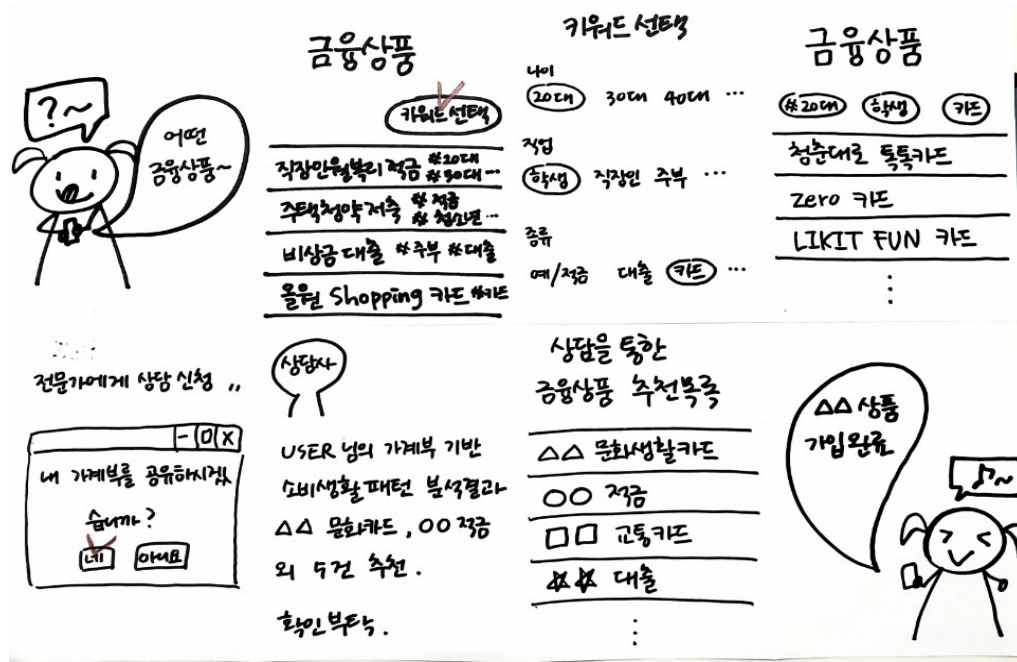 ?~
어떤
금융상품~
금융상품
키워드 선택
직장인월복리 적금 #20대 #30대 ...
주택청약저축 #적금 #청소년 ...
비상금대출 #주부 #대출
올원 Shopping 카드 #카드
키워드 선택
나이
20대 30대 40대 ...
직업
학생 직장인 주부 ...
종류
예/적금 대출 카드 ...
금융상품
#20대 학생 카드
청춘대로 톡톡카드
zero 카드
LIKIT FUN 카드
⋮
전문가에게 상담 신청 ,,
- □ X
내 가계부를 공유하시겠
습니까?
네 아니요
상담사
USER 님의 가계부 기반
소비생활패턴 분석결과
△△ 문화카드, ○○ 적금
외 5건 추천.
확인부탁.
상담을 통한
금융상품 추천목록
△△ 문화생활카드
○○ 적금
□□ 교통카드
☆☆ 대출
⋮
△△ 상품
가입완료
♪~